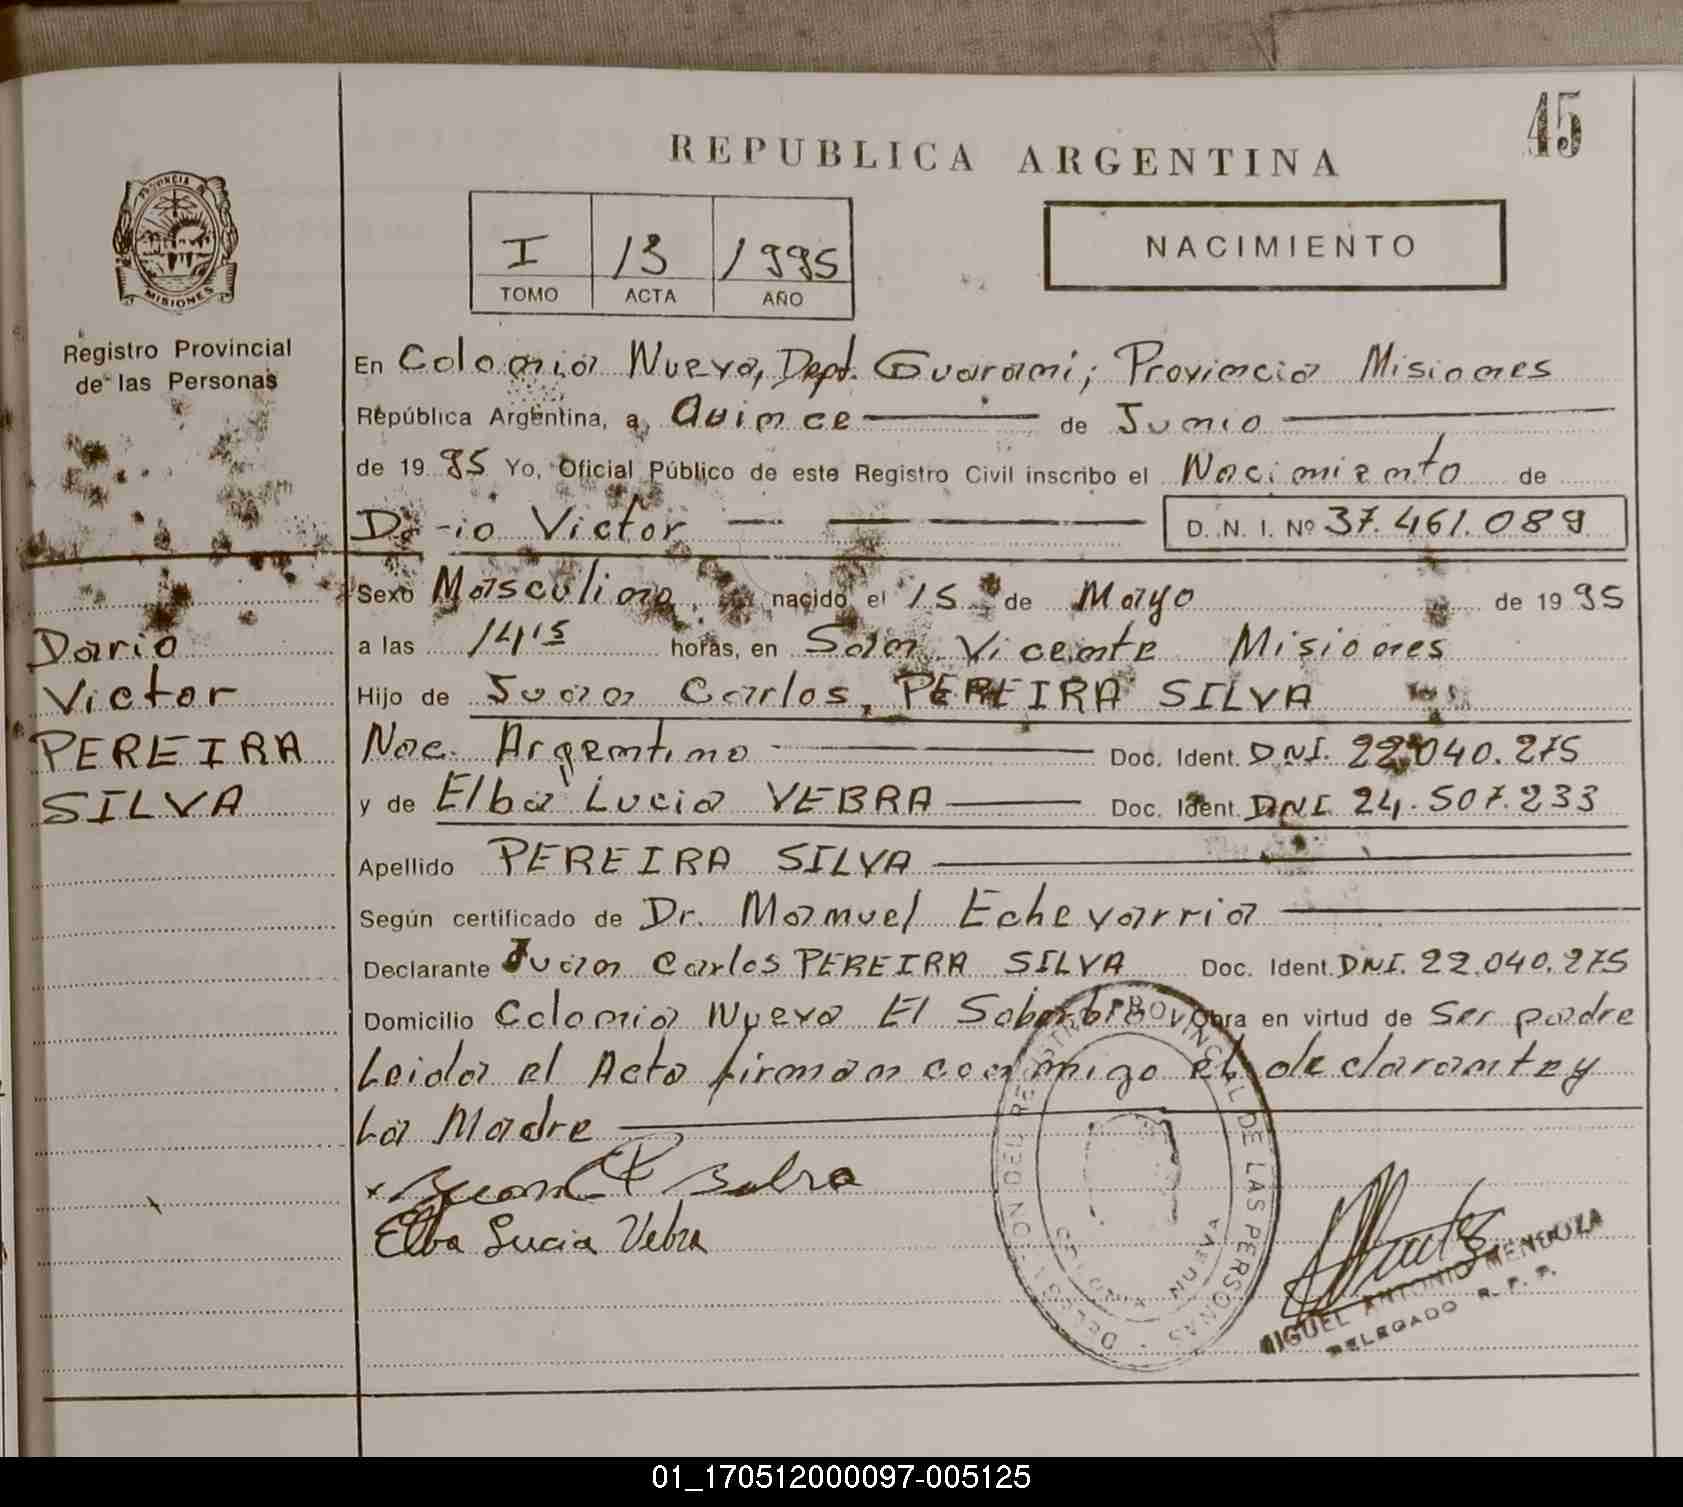 45
REPUBLICA ARGENTINA
PROVINCIA DE
MISIONES
Registro Provincial
de las Personas
I 13 1995
TOMO ACTA AÑO
NACIMIENTO
En Colonia Nueva, Dept. Guaraní; Provincia Misiones
República Argentina, a Quince de Junio
de 19 95 Yo, Oficial Público de este Registro Civil inscribo el Nacimiento de
Dario Victor D. N. I. Nº 37.461.089
Sexo Masculino nacido el 15 de Mayo de 19 95
a las 14,15 horas, en San Vicente Misiones
Hijo de Juan Carlos, PEREIRA SILVA
Nac. Argentino Doc. Ident. DNI. 22.040.275
y de Elba Lucia VEBRA Doc. Ident. DNI. 24.507.233
Apellido PEREIRA SILVA
Según certificado de Dr. Manuel Echevarria
Declarante Juan Carlos PEREIRA SILVA Doc. Ident. DNI. 22.040.275
Domicilio Colonia Nueva El Soberbio Obra en virtud de Ser padre
Leida el Acta firman conmigo el declarante y
La Madre
Dario
Victor
PEREIRA
SILVA
Elba Lucia Vebra
DELEGACION DEL REGISTRO PROVINCIAL DE LAS PERSONAS
COLONIA NUEVA
MIGUEL ANTONIO MENDOZA
DELEGADO R. P. P.
01_170512000097-005125